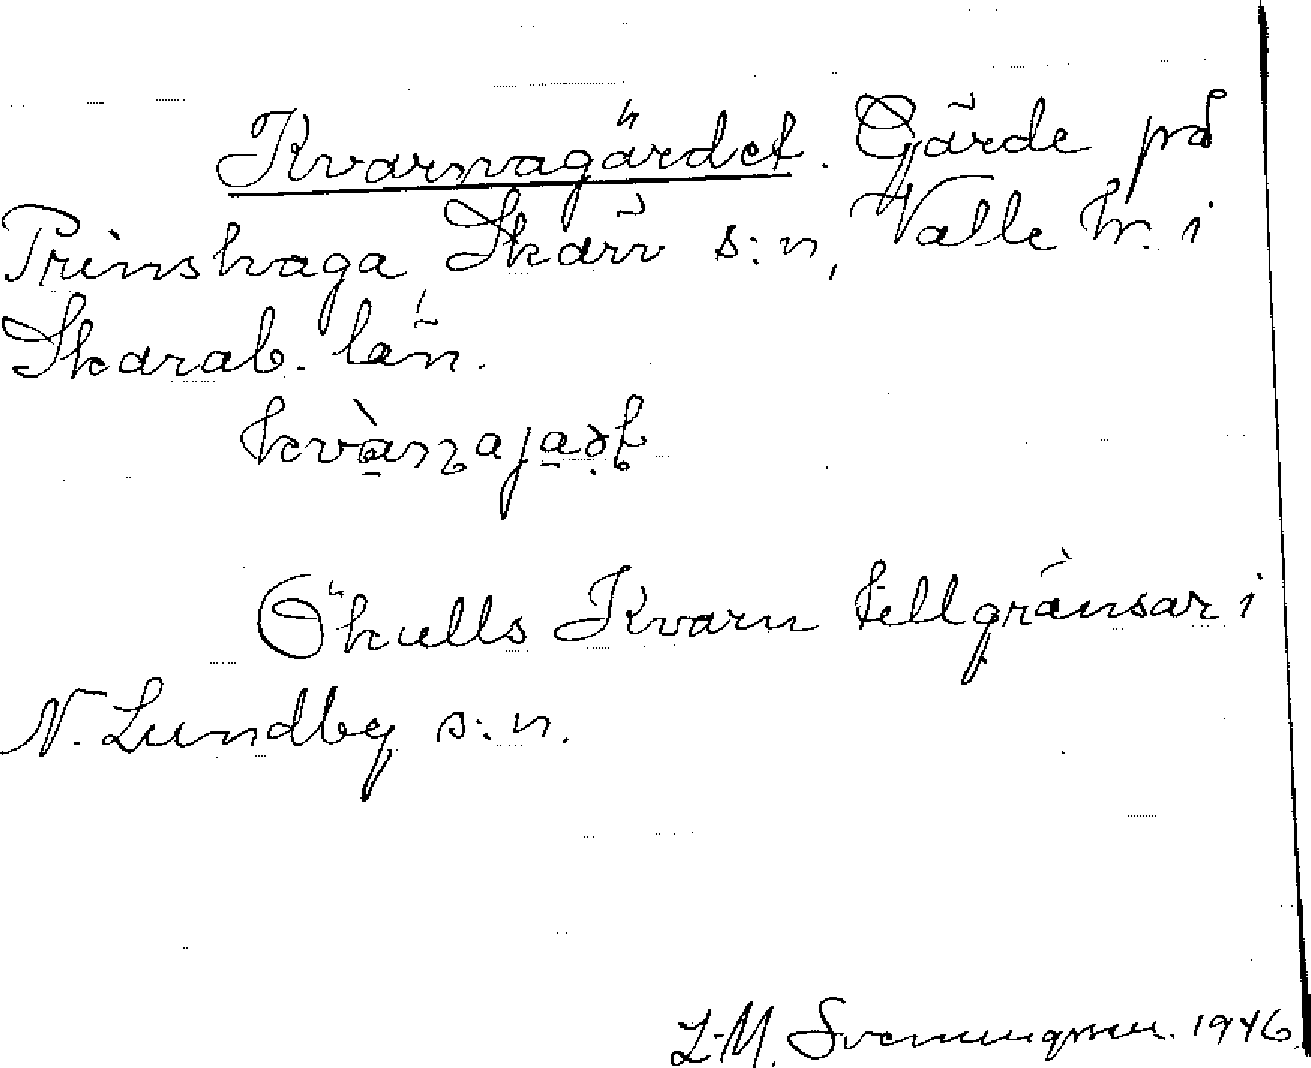 Kvarnagärdet. Gärde på
Prinshaga, Skärv s:n, Valle hr. i
Skarab. län.
Ökulls Kvarn tillgränsar i
N. Lundby s:n.
L-M. Svenungsson. 1946.